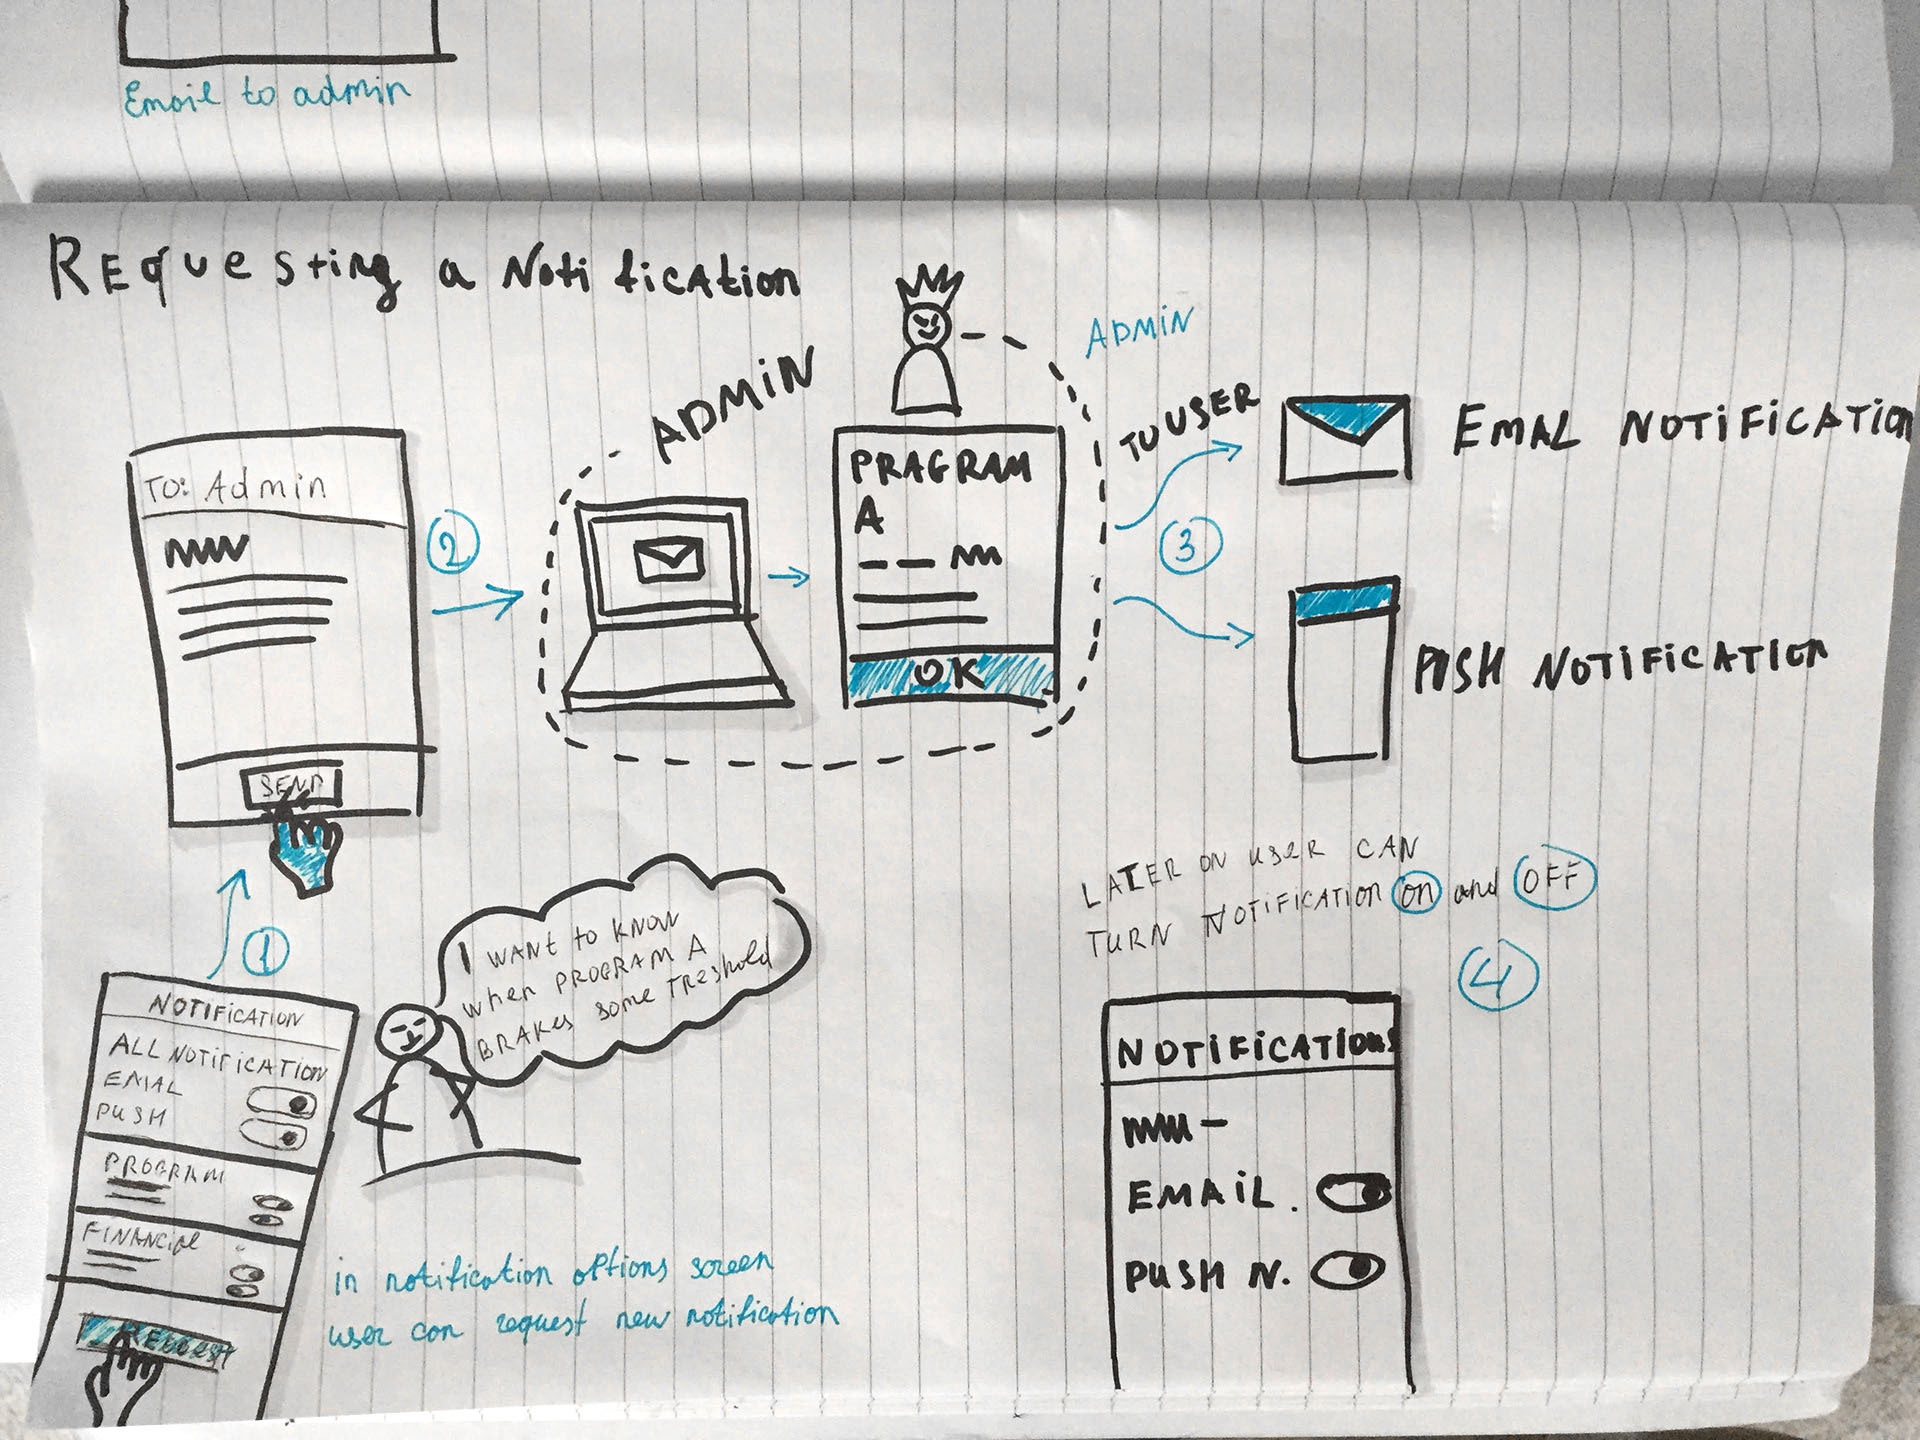 Email to admin
REquesting a Notification
ADMIN
ADMIN
TO: Admin
SEND
2
PRAGRAM
A
OK
TU USER
3
EMAL NOTIFICATION
PUSH NOTIFICATION
1
I WANT to KNOW
when PROGRAM A
BRAKES some TREshold
NOTIFICATION
ALL NOTIFICATION
EMAL
PUSH
PROGRAM
FINANCIAL
in notification options screen
user can request new notification
LATER ON USER CAN
TURN NOTIFICATION ON and OFF
4
NOTIFICATIONS
EMAIL.
PUSH N.